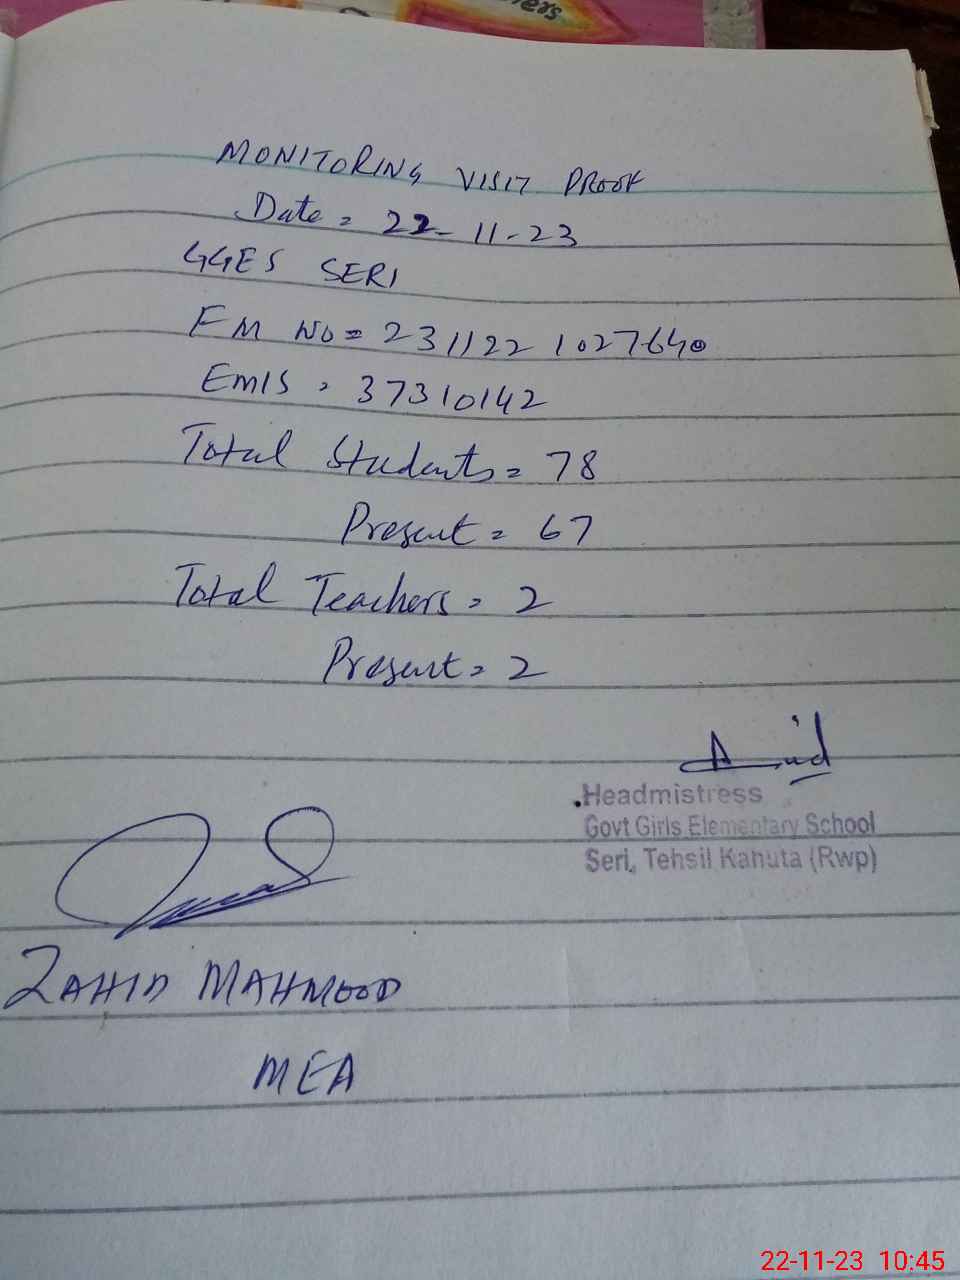 MONITORING VISIT PROOF
Date = 22-11-23
GGES SERI
FM No = 2311221027640
EMIS = 37310142
Total Students = 78
Present = 67
Total Teachers = 2
Present = 2
Headmistress
Govt Girls Elementary School
Seri, Tehsil Kahuta (Rwp)
ZAHID MAHMOOD
MEA
22-11-23 10:45